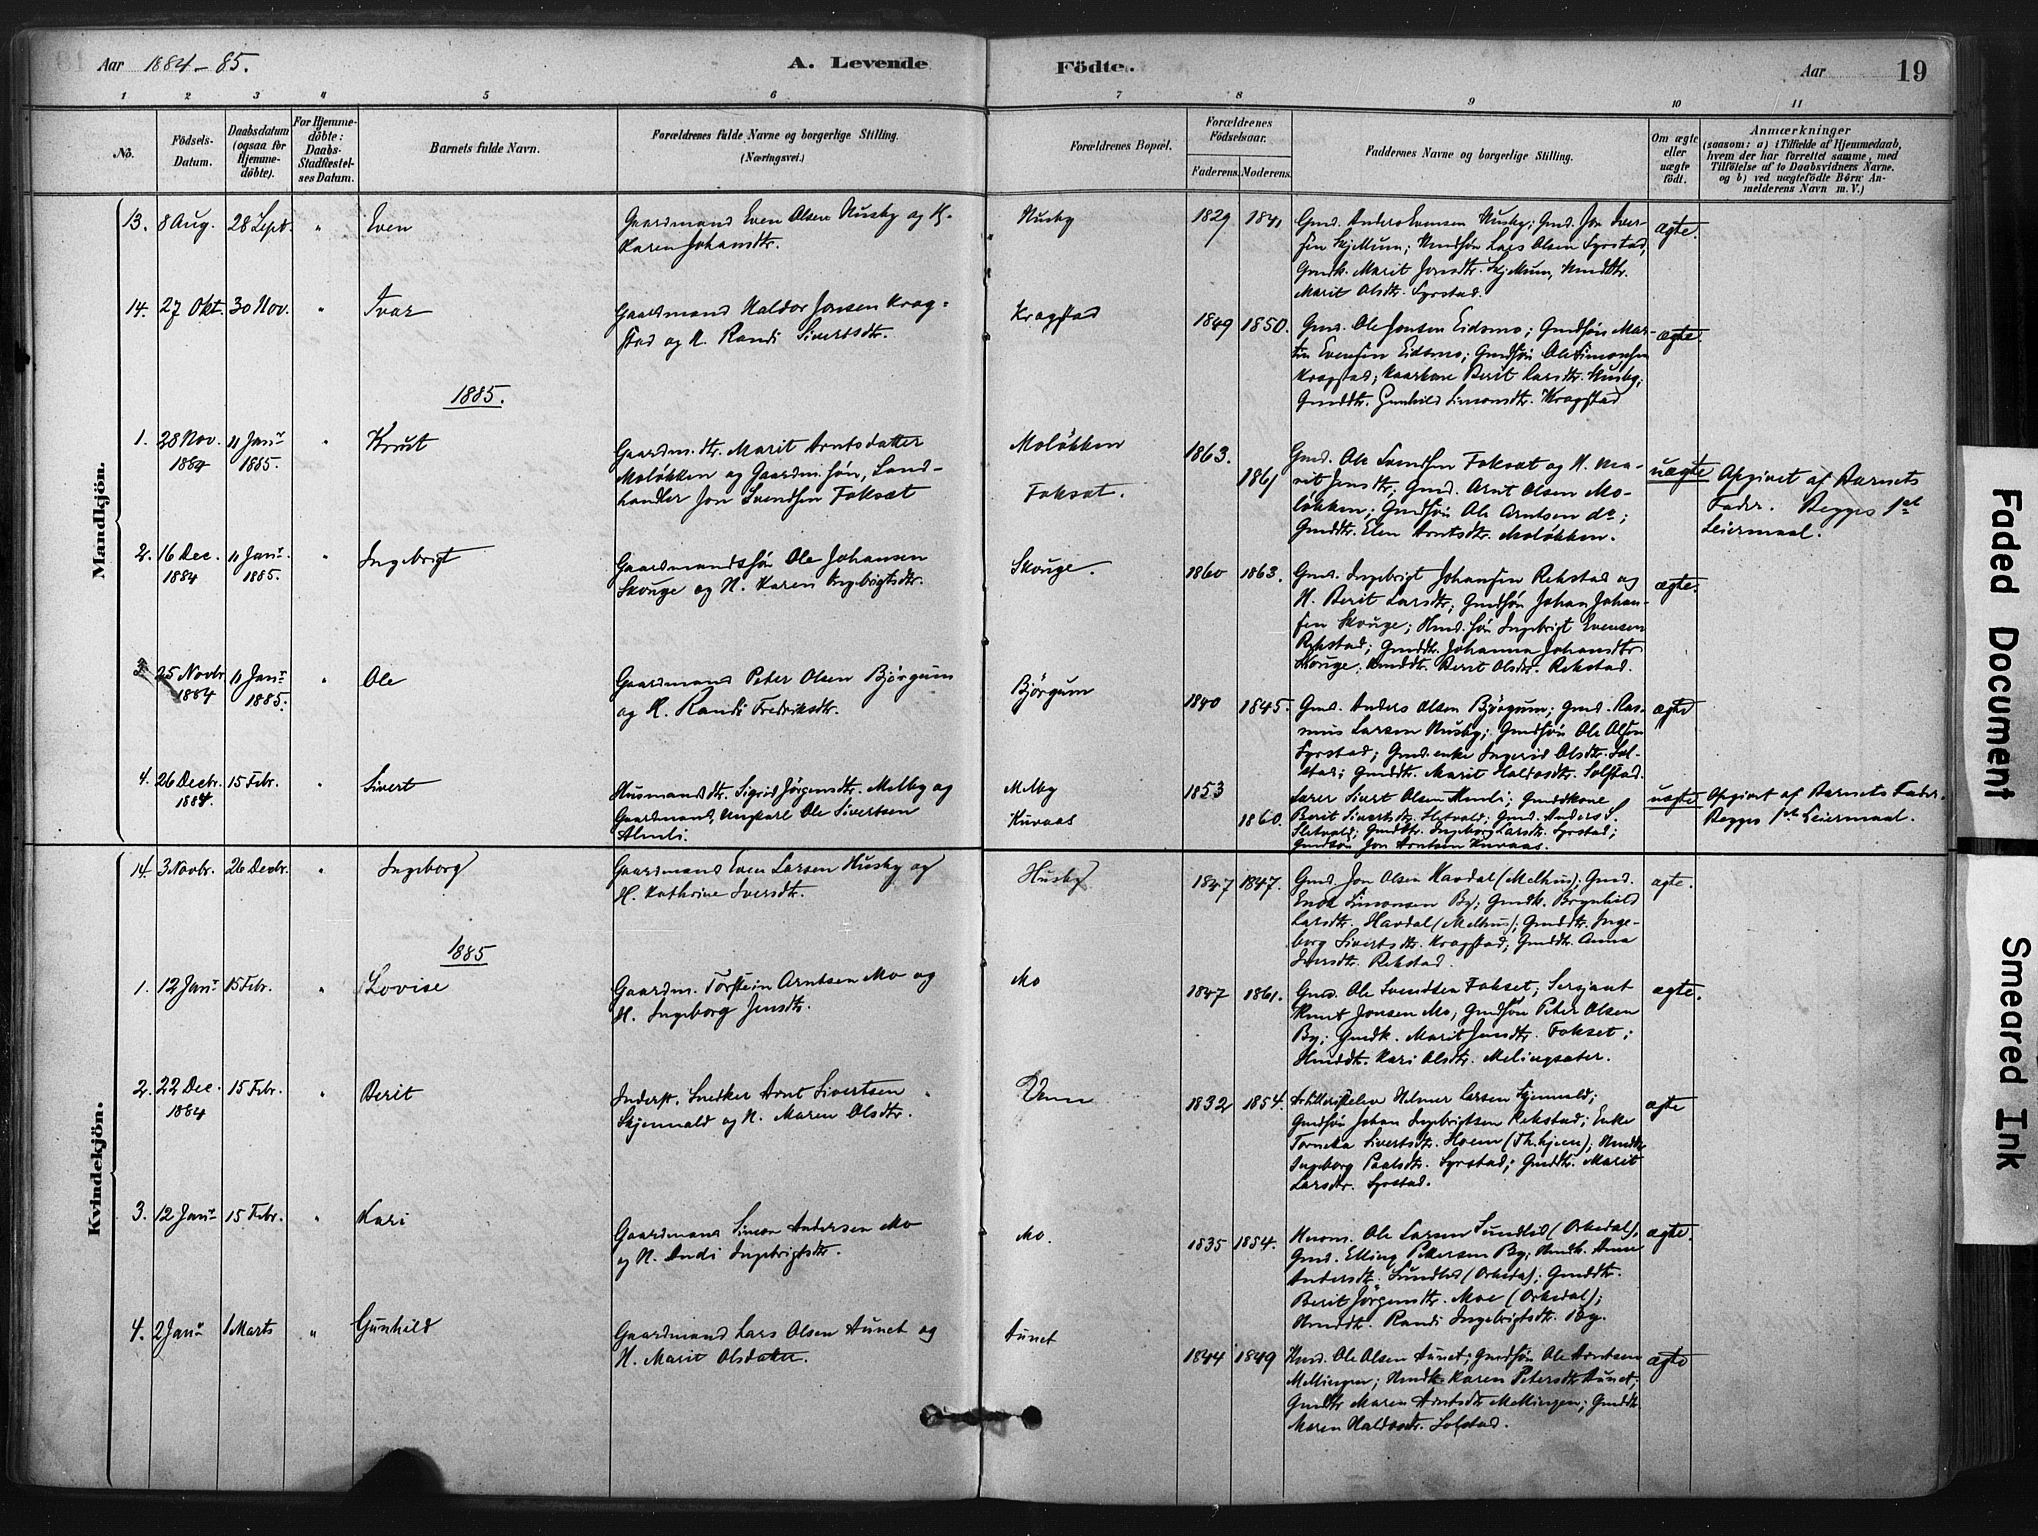 Aar 1884-85.
A. Levende
Födte.
Aar
19
1 2 3 4 5 6 7 8 9 10 11
No.
Födsels-
Datum.
Daabsdatum
(ogsaa for
Hjemme-
döbte).
For Hjemme-
döbte:
Daabs-
Stadfæstel-
ses Datum.
Barnets fulde Navn.
Forældrenes fulde Navne og borgerlige Stilling.
(Næringsvei.)
Forældrenes Bopæl.
Forældrenes
Födselsaar.
Faderens. Moderens.
Faddernes Navne og borgerlige Stilling.
Om ægte
eller
uægte
födt.
Anmærkninger
(saasom: a) i Tilfælde af Hjemmedaab,
hvem der har forrettet samme, med
Tilföielse af to Daabsvidners Navne.
og b) ved uægtefödte Börn An-
melderens Navn m. V.)
Mandkjön.
13. 8 Aug. 28 Sept. " Even
Gaardmand Even Olsen Husby og H.
Karen Johansdtr.
Husby
1829 1841
Gmd. Anders Evensen Husby; Gmd. Jon Iver-
sen Skjellum; Lars Olsen Syrstad,
Gmdk. Marit Jonsdtr. Skjellum,
Marit Olsdtr. Syrstad.
ægte.
14. 27 Okt. 30 Nov. " Ivar
Gaardmand Haldor Jonsen Krog-
stad og H. Randi Sivertsdtr.
Krogstad
1849 1850.
Gmd. Ole Jonsen Eidsmo; Gmdsön Mar-
tin Evensen Eidsmo; Gmdsön Ole Simonsen
Krogstad; Kaarkone Berit Larsdtr. Husby;
Gmddtr. Gunhild Simonsdtr. Krogstad
ægte.
1885.
1. 28 Nov. 1884 11 Janr 1885. " Knut
Gaardm. dtr. Marit Arntsdatter
Moløkken og Gaardm. søn, Land-
handler Jon Svendsen Foksæt
Moløkken
Foksæt.
1863.
1861
Gmd. Ole Svendsen Foksæt og H. Ma-
rit Jensdtr; Gmd. Arnt Olsen Mo-
løkken; Gmdsøn Ole Arntsen do;
Gmddtr. Elen Arntsdtr. Moløkken.
uægte
Opgivet af Barnets
Fader. Begges 1ste
Leiermaal.
2. 16 Dec. 1884 11 Janr 1885. " Ingebrigt
Gaardmandssøn Ole Johansen
Skouge og H. Karen Ingebrigtsdtr.
Skouge.
1860 1863.
Gmd. Ingebrigt Johansen Rekstad og
H. Berit Larsdtr; Gmdsøn Johan Johan-
sen Skouge; Hmd. søn Ingebrigt Evensen
Rekstad; Gmddtr. Johanna Johansdtr
Skouge. Berit Olsdtr. Rekstad.
ægte.
3. 25 Novbr 1884 11 Janr 1885. " Ole
Gaardmand Peter Olsen Bjørgum
og H. Randi Fredriksdtr.
Bjørgum
1840 1845.
Gmd. Anders Olsen Bjørgum; Gmd. Ras-
mus Larsen Husby; Gmdsøn Ole Olsen
Syrstad; Gmd. enke Ingerid Olsdtr. Sol-
stad; Gmddtr. Marit Haldosdtr. Solstad.
ægte
4. 26 Decbr. 1884. 15 Febr. " Sivert
Husmandsdtr. Sigrid Jørgensdtr. Melby og
Gaardmand, Ungkarl Ole Sivertsen
Almli.
Melby
Kuvaas
1853
1860.
Lærer Sivert Olsen Almli; Gmdskone
Berit Sivertsdtr. Sletvold; Gmd. Anders S.
Sletvold; Gmddtr. Ingeborg Larsdtr. Syrstad;
Gmdsøn Jon Arntsen Kuvaas.
uægte
Opgivet af Barnets Fader.
Begges 1ste Leiermaal.
Kvindekjön.
14. 3 Novbr. 26 Decbr. " Ingeborg
Gaardmand Even Larsen Husby og
H. Kathrine Iversdtr.
Husby
1847 1847.
Gmd. Jon Olsen Havdal (Melhus); Gmd.
Enok Simonsen By; Gmdk. Brynhild
Larsdtr. Havdal (Melhus); Gmddtr. Inge-
borg Sivertsdtr. Krogstad; Gmddtr. Anna
Iversdtr. Rekstad.
ægte.
1885
1. 12 Janr 15 Febr. " Lovise
Gaardm. Torstein Arntsen Mo og
H. Ingeborg Jensdtr.
Mo
1847 1861.
Gmd. Ole Svendsen Fokset; Sersjant
Knut Jonsen Mo; Gmdsøn Peter Olsen
By; Gmdk. Marit Jensdtr. Fokset;
Hmddtr. Kari Olsdtr. Melingsæter.
ægte.
2. 22 Dec. 1884 15 Febr. " Berit
Inderst. Snedker Arnt Sivertsen
Skjenald og H. Maren Olsdtr.
1832 1854.
Artillerielev Helmer Larsen Skjenald;
Gmdsøn Johan Ingebrigtsen Rekstad; Enke
Sivertsdtr. Hoem (Th.hjem),
Ingeborg Paalsdtr. Syrstad; Gmddtr. Marit
Larsdtr. Syrstad.
ægte
3. 12 Janr 15 Febr. " Kari
Gaardmand Simon Andersen Mo
og H. Ingebrigtsdtr.
Mo.
1835 1854.
Ole Larsen Sundlid (Orkedal),
Gmd. Elling Pedersen By; Anne
Andersdtr. Sundlid (Orkedal); Gmddtr.
Berit Jørgensdtr. Moe (Orkedal);
Hmddtr. Randi Ingebrigtsdtr. By.
ægte.
4. 2 Janr 1 Marts " Gunhild
Gaardmand Lars Olsen Aunet og
H. Marit Olsdatter.
Aunet
1844 1849
Ole Olsen Aunet; Gmdsøn Ole Arntsen
Mellingen; Hmdk. Karen Petersdtr Aunet;
Gmddtr Maren Arntsdtr Mellingen; Gmddtr.
Maren Haldosdtr. Solstad.
ægte
Faded Document
Smeared Ink